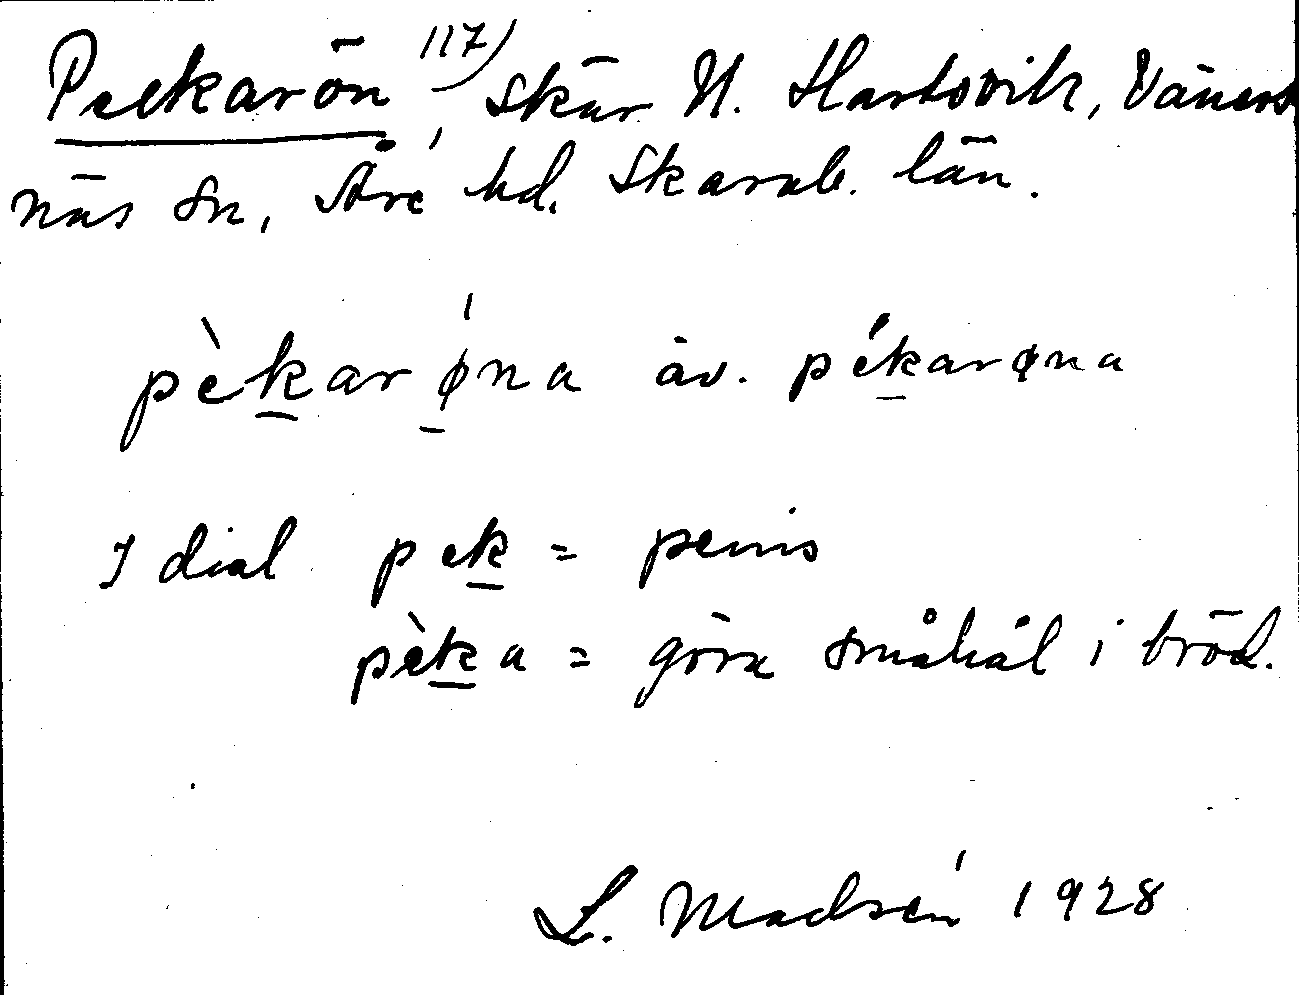 Peckarön 117), skär N. Hartsvik, Väners
näs sn, Åre hd. Skarab. län.
pèkarǿna äv. pékarøna
I dial pek = penis
pèka = göra småhål i bröd.
L. Madsén 1928